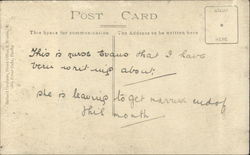 POST CARD
This Space for communication
The Address to be written here
This is nurse Evans that I have
been writing about.
she is leaving to get married end of
this month